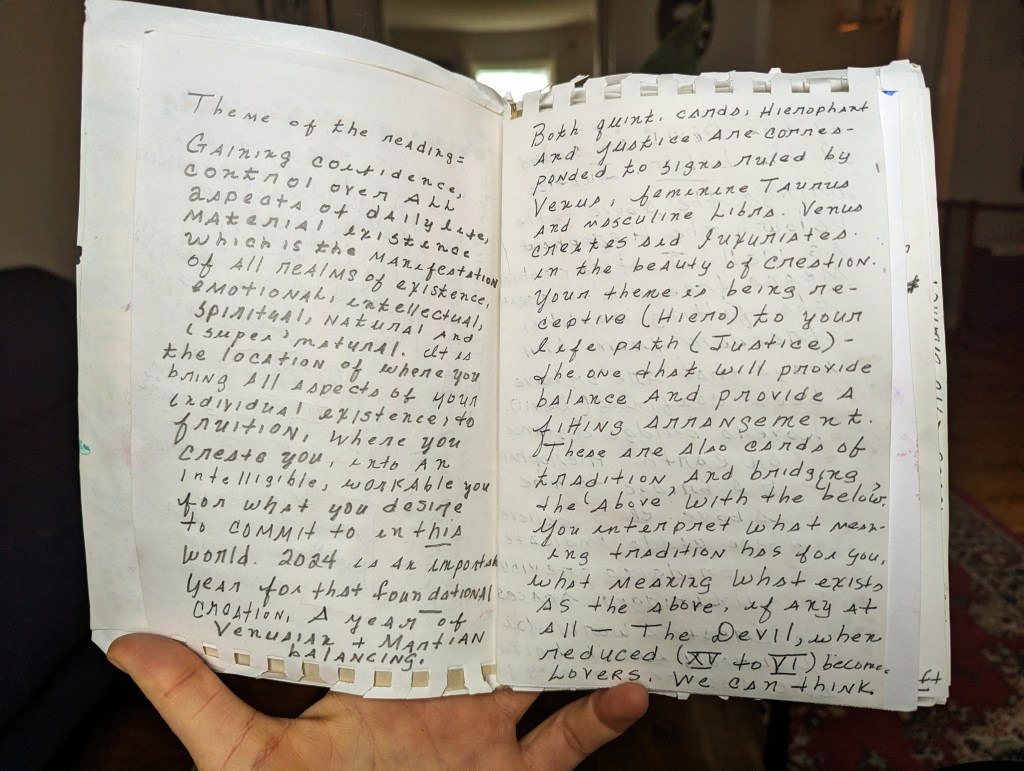 Theme of the reading=
Gaining confidence,
control over all
aspects of daily life,
material existence
which is the manifestation
of all realms of existence,
emotional, intellectual,
spiritual, natural and
(super) natural. It is
the location of where you
bring all aspects of your
individual existence, to
fruition, where you
create you, into an
intelligible, workable you
for what you desire
to commit to in this
world. 2024 is an important
year for that foundational
creation, A year of
Venusian + Martian
balancing.
Both quint. cards, Hierophant
and Justice are corres-
ponded to signs ruled by
Venus, feminine Taurus
and masculine Libra. Venus
creates and luxuriates
in the beauty of creation.
Your theme is being re-
ceptive (Hiero) to your
life path (Justice) -
the one that will provide
balance and provide a
fitting arrangement.
These are also cards of
tradition and bridging
the 'above' with the below.
You interpret what mean-
ing tradition has for you,
what meaning what exists
as the above, if any at
all — The Devil, when
reduced (XV to VI) become
Lovers. We can think
ft